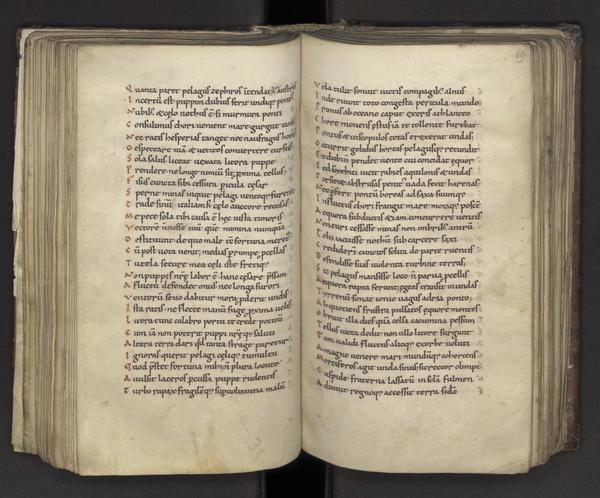 Quanta paret pelagus zephiros ītendat an austros
Incertū est puppim dubius ferit undiq; pontus
Nubib; & celo nothus ē si murmura ponti
Consulimus chori uenient mare gurgite tanto
Nec ratis hesperias tanget nec naufragus horas
Desperare uiā & uetitos conuertere cursus
Sola salus liceat uexata litora puppe
Prendere ne longe nimiū sit pxima tellus
Fisus cuncta sibi cessura picula cesar
Sperne minas inquit pelagi uentoq; furenti
Trade sinū italiam si celo auctore recusas
Me pete sola tibi causa ē hęc iusta timoris
Vectorē ñ nosse tuū quē numina numquā
Destituunt de quo male tū fortuna meretur
Cū post uota uenit medias prūmpe pcellas
Tutela secure mea celi iste fretiq;
Non puppis nrę labor ē hanc cesare pssam
A fluctu defendet onus nec longa furori
Ventorum seuo dabitur mora pderit undis
Ista ratis ne flecte manū fuge pxima uelis
Litora tunc calabro portu te crede potitū
Cum iā non poterit puppi nręq; saluti
Altera terra dari qd tanta strage paretur
Ignoras querit pelagi celiq; tumultu
Quod pstet fortuna mihi ñ plura locuto
Auulsit laceros pcussa puppe rudentis
Turbo rapax fragilēq; sup uolitantia malū
69
Vela tulit sonuit uictis compagib; alnus
Inde ruunt toto congesta pericula mundo
Primus ab oceano caput exeris athlanteo
Chore mouens estus iā te tollente furebat
Pontus & in scopulos totas erexerat undas
Occurrit gelidus boreas pelagusq; retundit
Et dubiū pendet uento cui concidat equor
Sed scithici uicit rabies aquilonis & undas
Torsit & abstrusas penit uada fecit harenas
Nec pfert pontū boreas ad saxa suumq;
In fluctus chori frangit mare motaq; possent
Aequora subductis etiam concurrere uentis
Non euri cessasse minas non imbrib; atrum
Tolu iacuisse nothū sub carcere saxi
Crediderī cunctos solita de parte ruentis
Defendisse suas uiolenta turbine terras
Sic pelagus mansisse loco ñ parua pcellis
Aequora rapta ferunt egeas transit in undas
Tyrrenū sonat ionio uagus adria ponto
Ah quotiens frustra pulsatos equore montes
Obruit illa dies quā celsa cacumina pessum
Tellus uicta dedit non ullo litore surgunt
Tam ualidi fluctus alioq; exorbe uoluti
A magno uenere mari mundūq; cohercens
Mortiferos agit unda sinus sic rector olimpi
Cuspide fraterna lassatū in scla fulmen
Adiuuit regnoq; accessit terra scdo